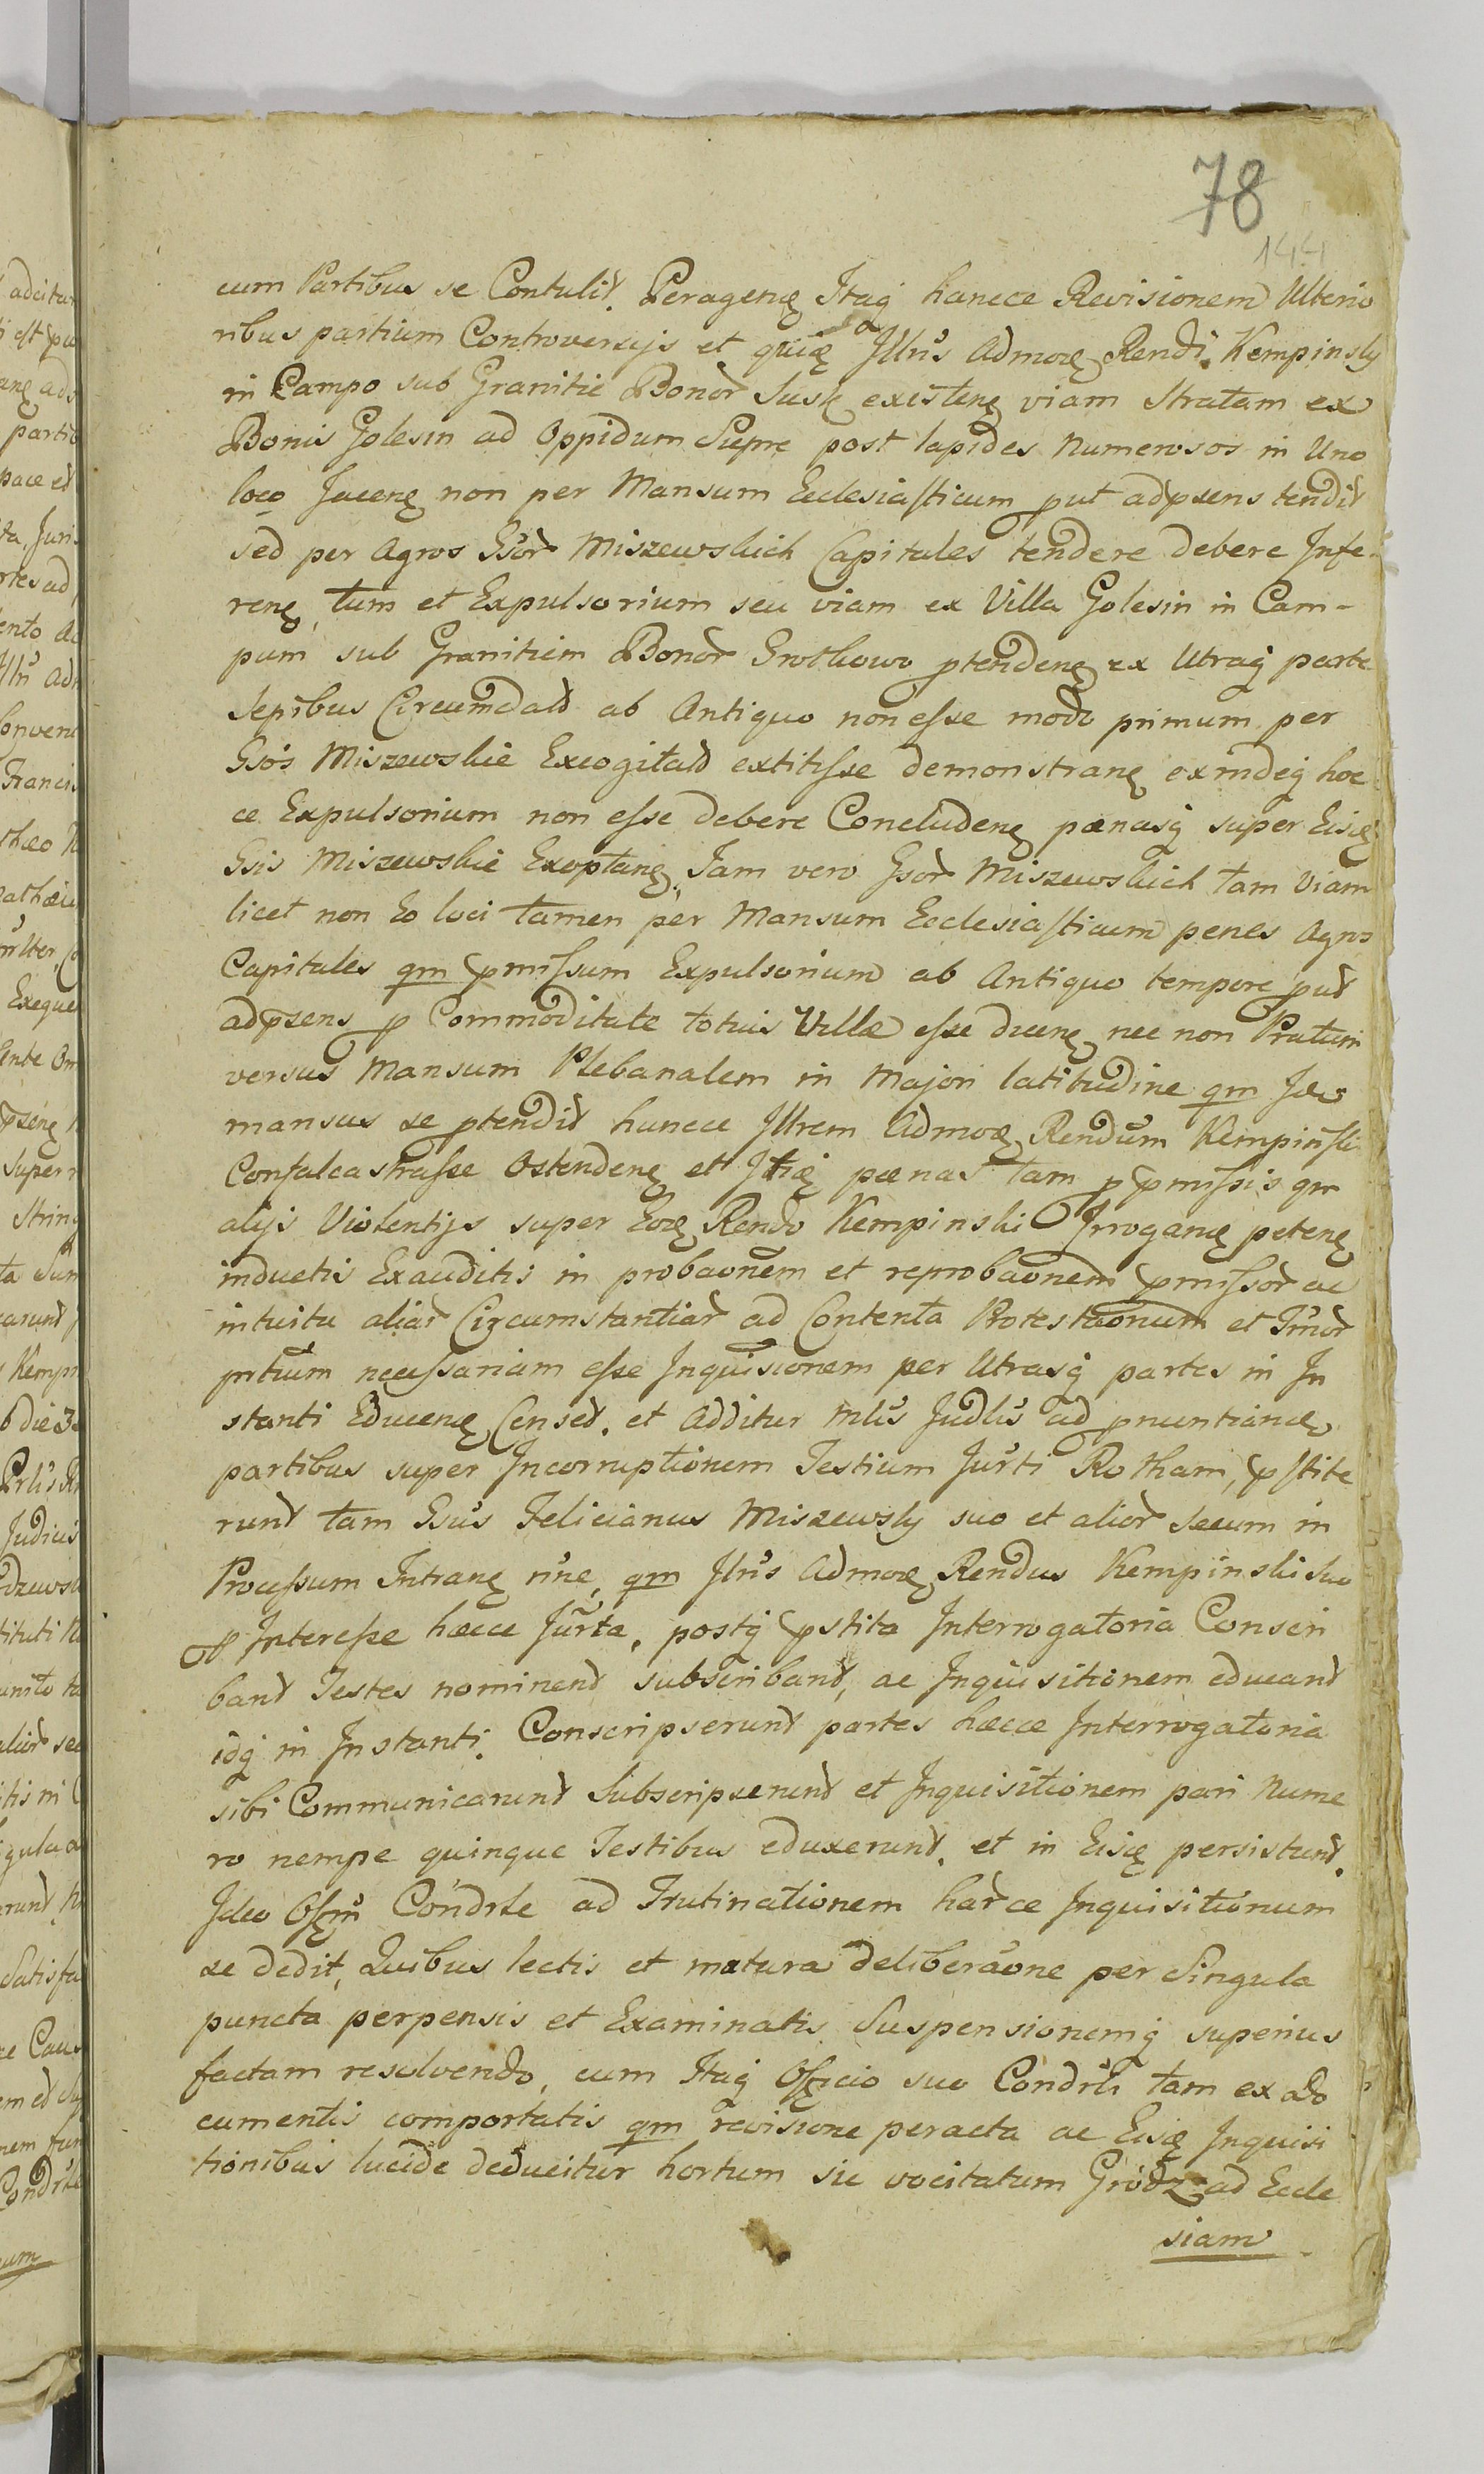 78
144
cum Partibus se Contulit. Peragenę Itaq hancce Revisionem Ulterio
ribus partium Controversys et quię Jllris Admorę Rendi. Kempinsky
in Campo sub Granitie Bonor Susk existenę viam Stratam ex
Bonis Golesin ad Oppidum Siepre post lapides numerosos in Uno
loco Jacenę non per Mansum Ecclesiasticum put adpsens tendit
sed per Agros Gsor Miszewskich Capitales tendere debere Infe-
renę, tum et Expulsorium seu viam ex Villa Golesin in Cam-
pum sub Granitiem Bonor Srokowo ptendenę ex Utraq parte
Sepibus Circumdatd ab Antiquo non esse modo primum per
Gsos Miszewskie Excogitatd extitisse demonstranę exindeq hoc
ce Expulsorium non esse debere Concludenę pænasq super Eisdę
Gsis Miszewskie Exoptanę. Jam vero Gsor Miszewskich tam Viam
licet non Eo loci tamen per Mansum Ecclesiasticum penes Agros
Capitales qm pmissum Expulsorium ab Antiquo tempore put
adpsens p Commoditate totius Villæ esse dicenę nec non Pratum
versus Mansum Plebanalem in Majori latitudine qm Idę
mansus se ptendit huncce Jllrem Admorę Rendum Kempinski
Confalcastrasse Ostendenę et Itię pœnas tam p pmissis qm
alys Violentys super Eorę Rendo Kempinski Irroganę petenę
inductis Exauditis in probaonem et reprobaonem pmissor ac
intuitu aliar Circumstantiar ad Contenta Protestaonum et Imor
prtium necessariam esse Inquisionem per Utrasq partes in In
stanti Educenę Censet. et Additur Mlis Judlis ad pnuntiandę
partibus super Incorruptionem Testium Jurti Rotham, pstite
runt tam Gsus Felicianus Miszewsky suo et alior secum in
Processum Intranę nne, qm Jlris Admorę Rendus Kempinski suo
ob Interesse hæcce Jurta. postq pstita Interrogatoria Conscri
bant Testes nominent subscribant, ac Inquisitionem educant
idq in Instanti. Conscripserunt partes hæcce Interrogatoria
sibi Communicarunt Subscripserunt et Inquisitionem pari Nume
ro nempe quinque Testibus eduxerunt. et in Eisdę persistunt.
Ideo Offm Condrle ad Trutinationem harce Inquisitionum
se dedit, Quibus lectis et matura deliberaone per Singula
puncta perpensis et Examinatis Suspensionemq superius
factam resolvendo, cum Itaq Officio suo Condrli tam ex do
cumentis comportatis qm revisione peracta ac Eisdę Inquisi
tionibus lucide deducitur hortum sic vocitatum Grodz ad Eccle
siam